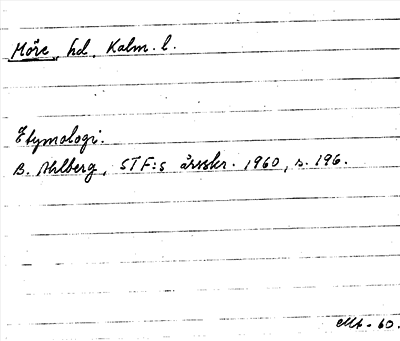 Möre, hd, Kalm. l.
Etymologi.
B. Ahlberg, STF:s årsskr. 1960, s. 196.
60.